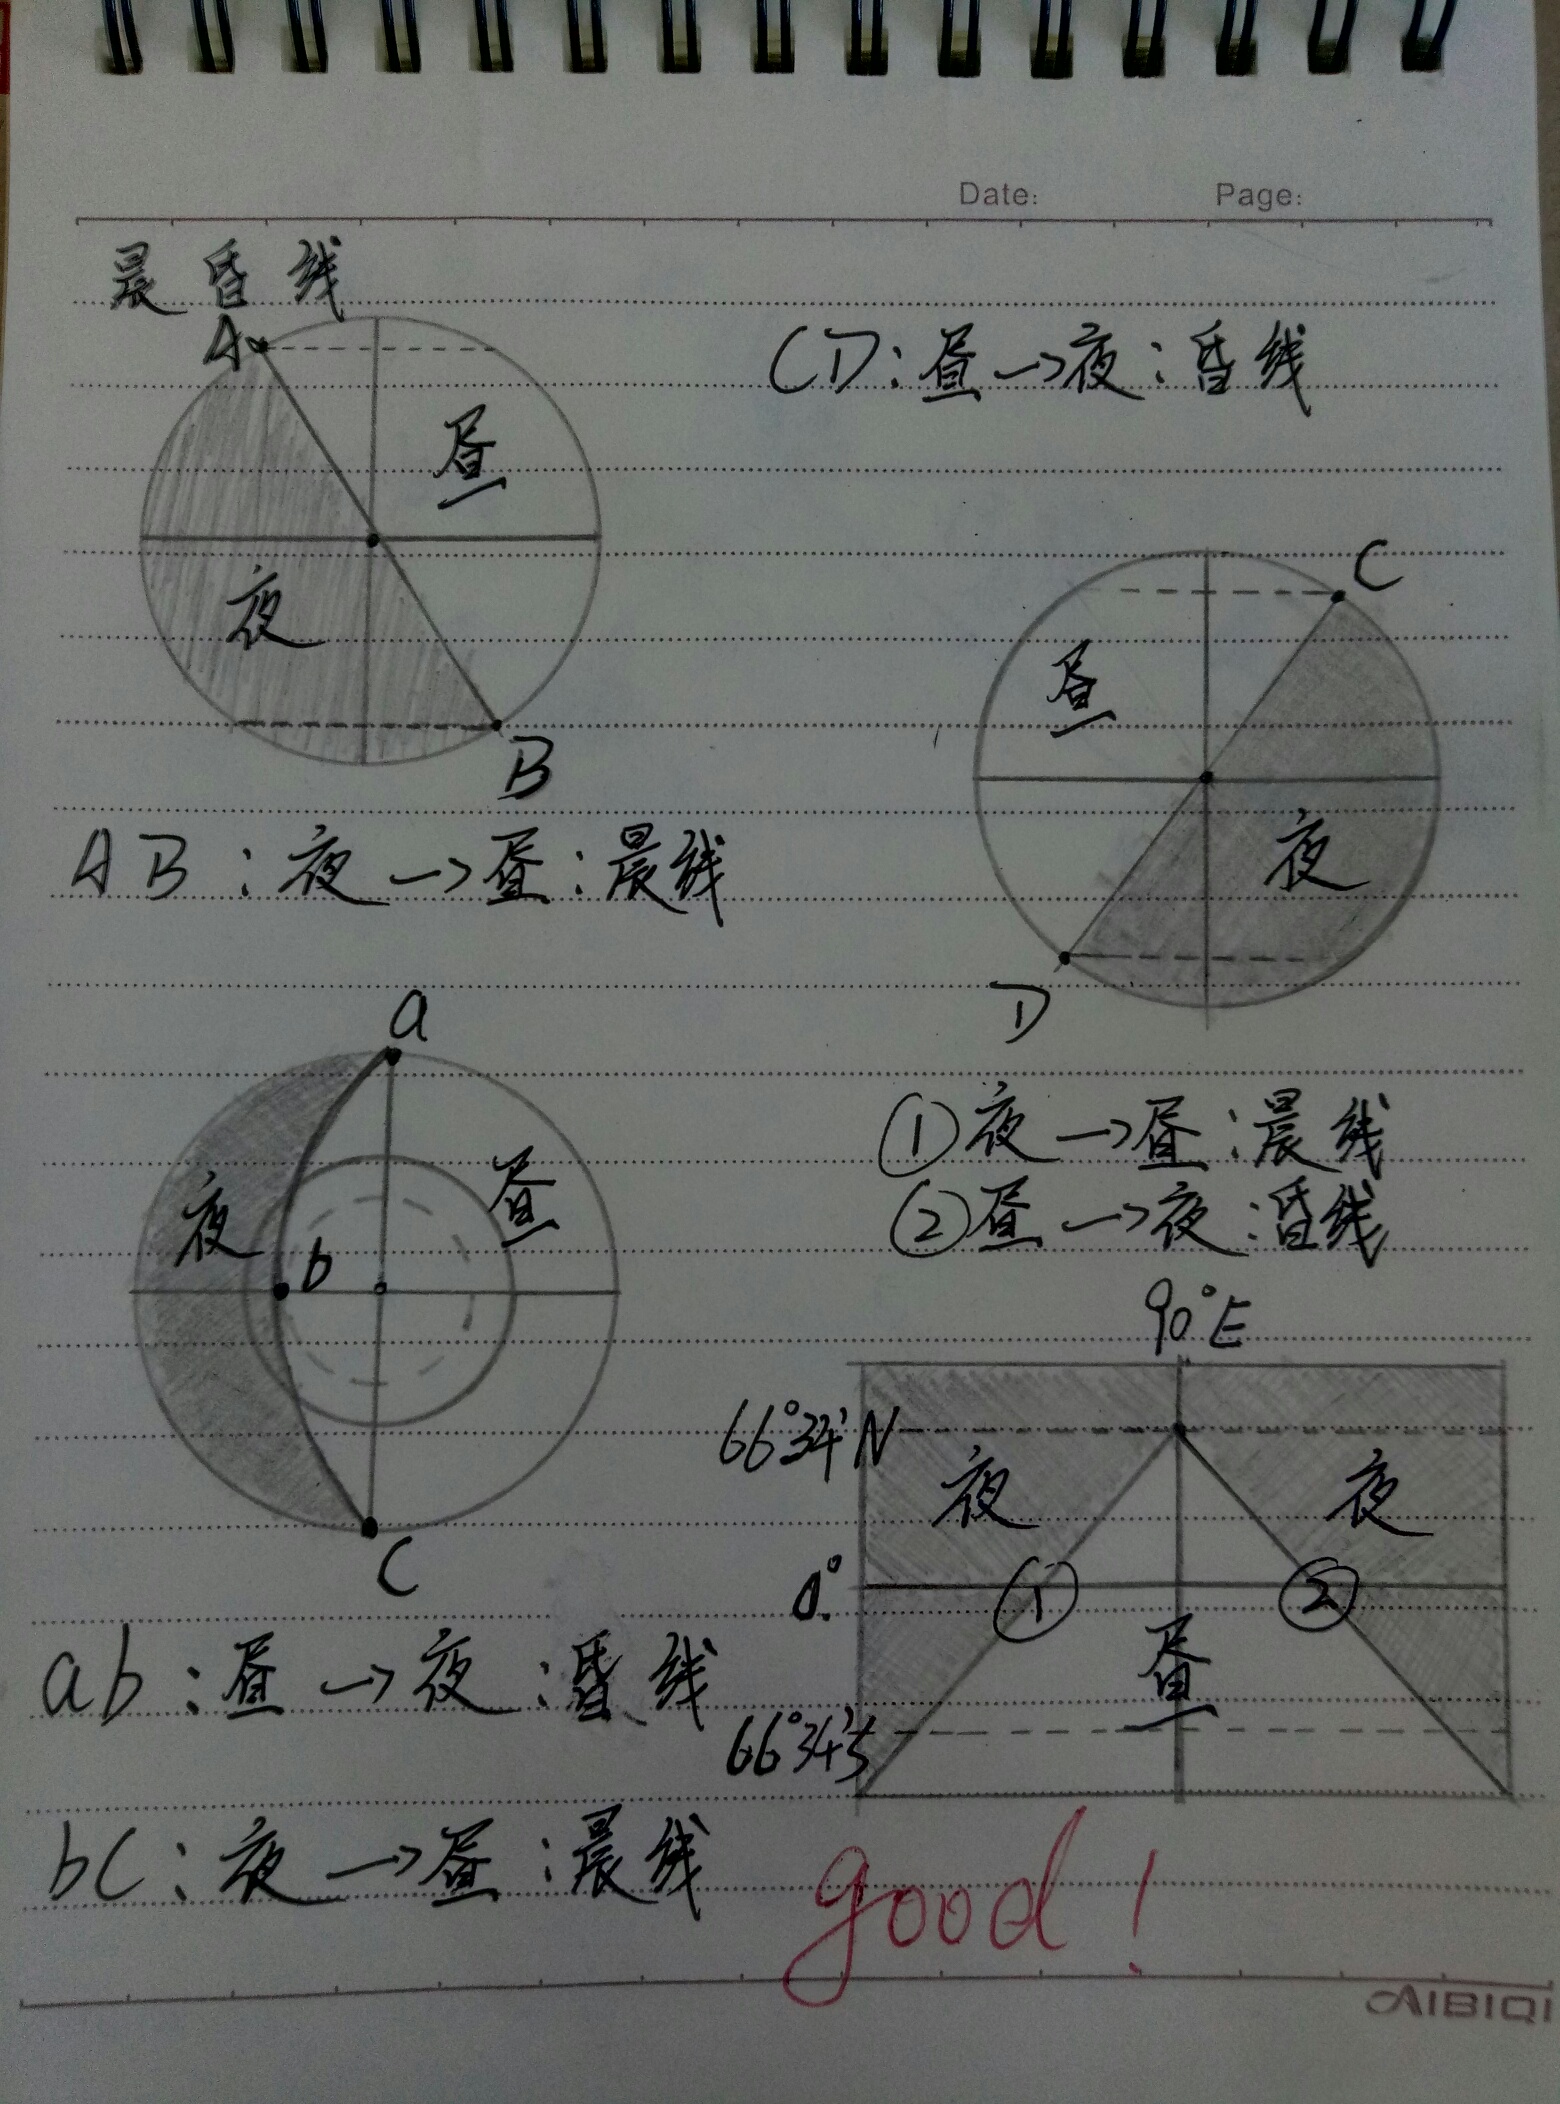 Date: Page:
晨昏线
A
昼
夜
B
AB:夜→昼:晨线
CD:昼→夜:昏线
C
昼
夜
D
a
夜
昼
b
C
ab:昼→夜:昏线
bC:夜→昼:晨线
①夜→昼:晨线
②昼→夜:昏线
90°E
66°34'N
夜 夜
0°
① ②
昼
66°34'S
good!
AIBIQI